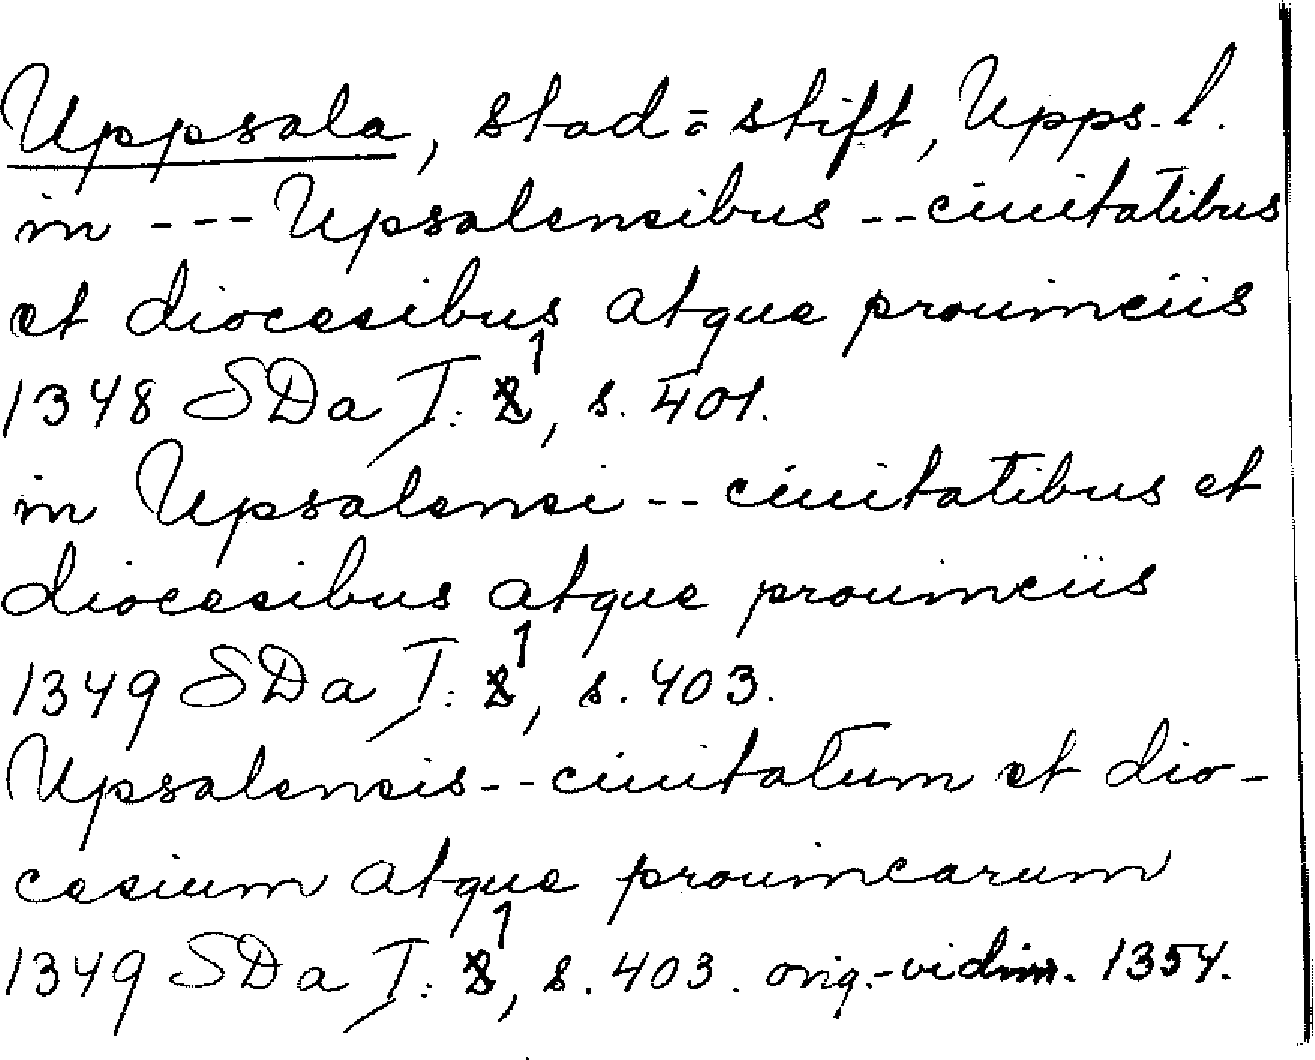 Uppsala, stad = stift, Upps. l.
in --- Upsalensibus -- ciuitatibus
et diocesibus atque prouinciis
1348 SDa I: 1, s. 401.
in Upsalensi -- ciuitatibus et
diocesibus atque prouinciis
1349 SDa I: 1, s. 403.
Upsalensis -- ciuitatum et dio-
cesium atque prouincarum
1349 SDa I: 1, s. 403. orig.-vidim. 1354.